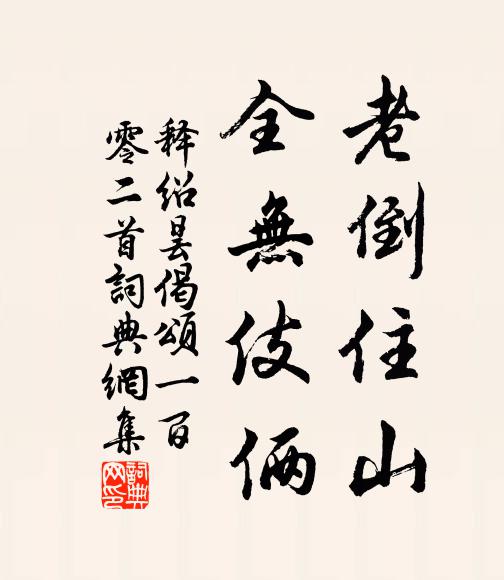 老倒住山
全無伎倆
释紹曇偈頌一百
零二首詞典網集
詞典
网印